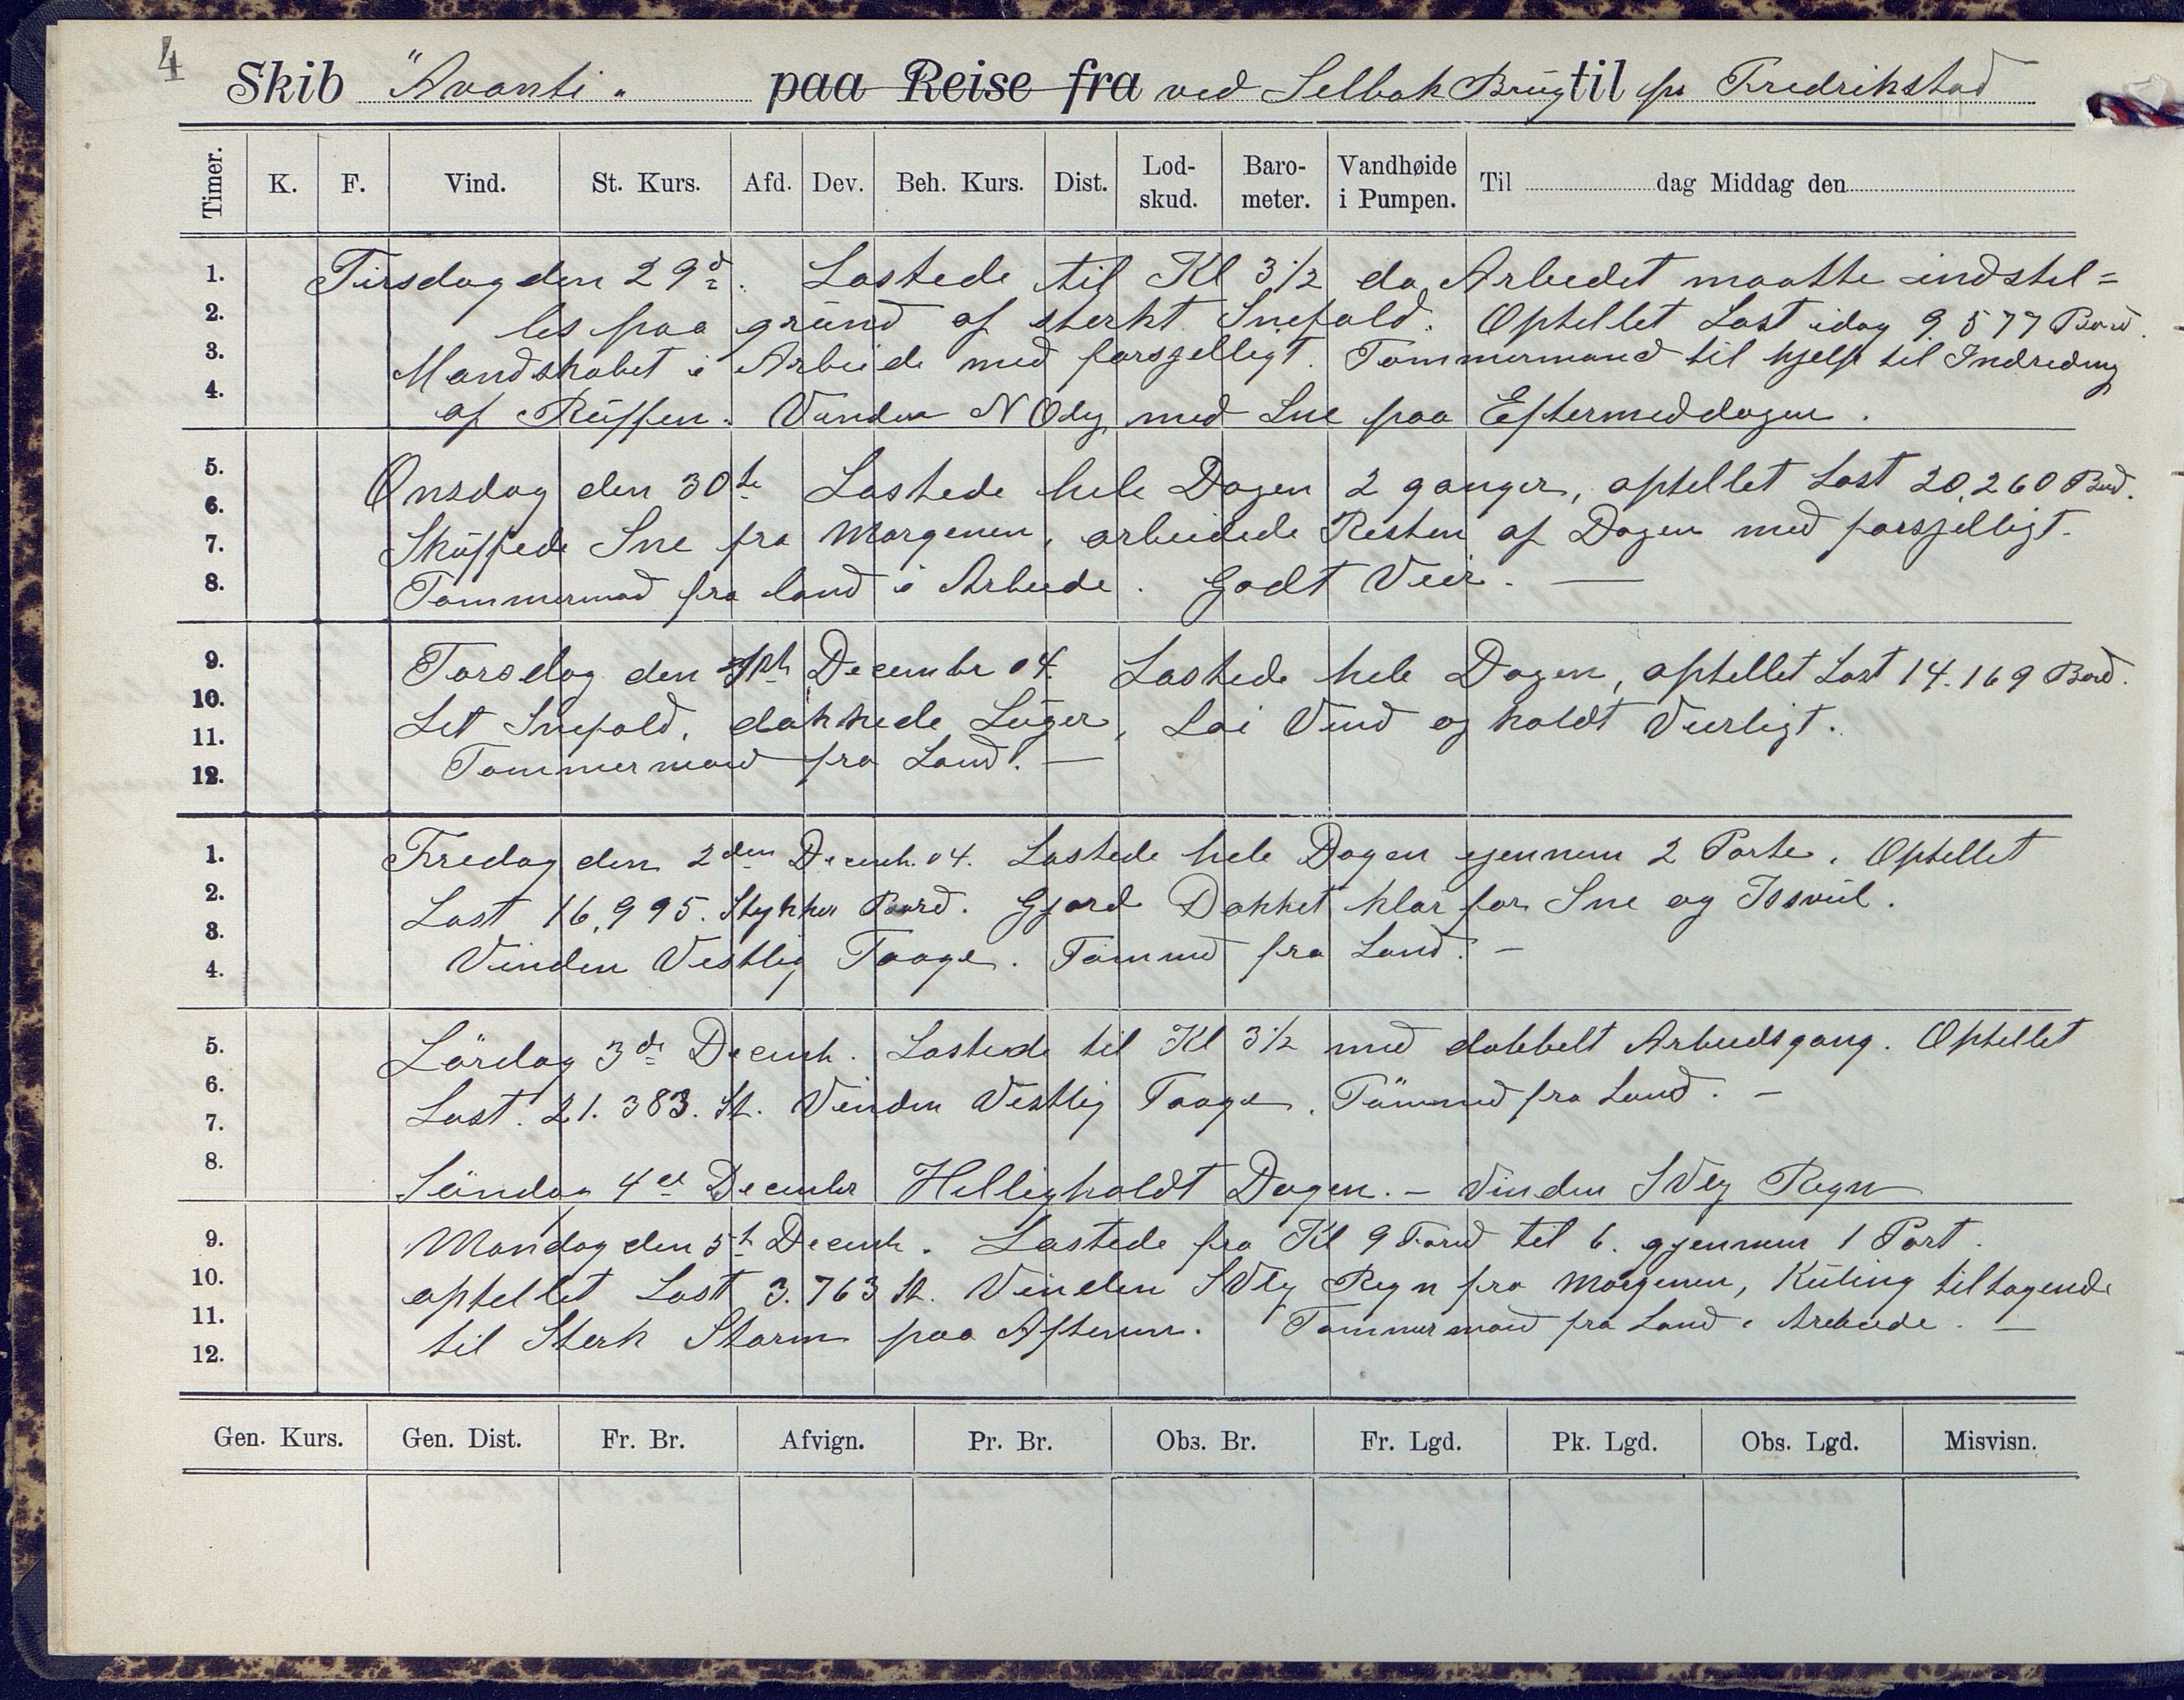 4
Skib "Avanti" paa Reise fra ved Selbak Brüg til pr Fredrikstad
Timer. K. F. Vind. St. Kurs. Afd. Dev. Beh. Kurs. Dist. Lod-skud. Baro-meter. Vandhøide i Pumpen. Til dag Middag den
1. Tirsdag den 29d. Lastede til Kl 3½ da Arbeidet maatte indstil=
2. les paa gründ af sterkt Snefald. Optellet Last idag 9.577 Bord.
3. Mandskabet i Arbeide med forsjelligt. Tømmermand til hjelp til Indredning
4. af Rüffen. Vinden NOlig med Sne paa Eftermeddagen.
5. Onsdag den 30te Lastede hele Dagen 2 ganger, optellet Last 20,260 Bord.
6.
7. Sküffede Sne fra Morgenen, arbeidede Resten af Dagen med forsjelligt.
8. Tømmermad fra land i Arbeide. Godt Veir. —
9. Torsdag den Decembr 04. Lastede hele Dagen, optellet Last 14.169 Bord.
10. Let Snefald, dækkede Lüger, Lai Vind og koldt Veirligt.
11.
12. Tømmermand fra Land. —
1. Fredag den 2den Decmb. 04. Lastede hele Dagen gjennem 2 Porte. Optellet
2. Last 16,995. Stykker Bord. Gjord Dækket klar for Sne og
3.
4. Vinden Vestlig Taage. Tømmd fra Land. —
5. Lördag 3de Decmb. Lastede til Kl 3½ med dobbelt Arbeidsgang. Optellet
6. Last. 21.383. St. Vinden Vestlig Taage. Tömmd fra Land. —
7.
8. Söndag 4de Decembr Helligholdt Dagen. — Vinden SVlig Regn
9. Mandag den 5te Decmb. Lastede fra Kl 9 Formd til 6. gjennem 1 Port.
10. optellet Last 3.763 St. Vinden SVlig Regn fra Morgenen, Küling tiltagende
11. til Sterk Storm paa Aftenen. Tømmermand fra Land i Arbeide. —
12.
Gen. Kurs. Gen. Dist. Fr. Br. Afvign. Pr. Br. Obs. Br. Fr. Lgd. Pk. Lgd. Obs. Lgd. Misvisn.